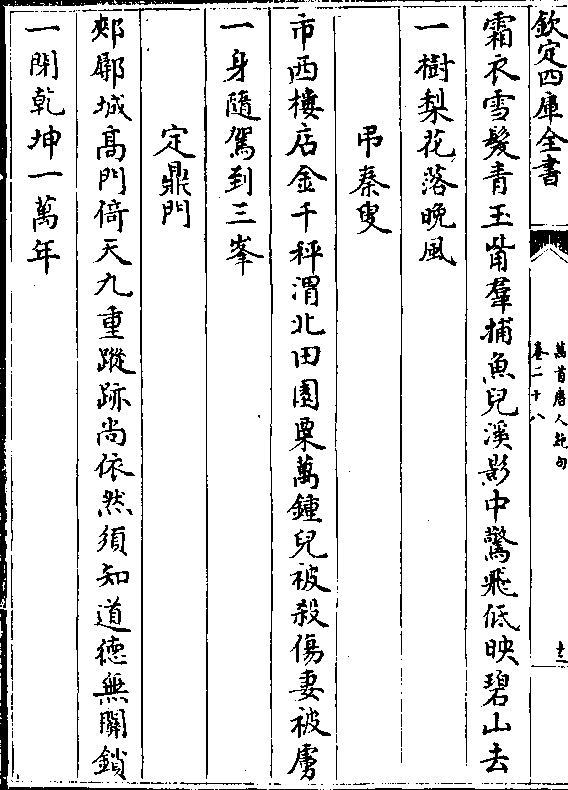 欽定四庫全書
萬首唐人絶句
卷二十八
十二
霜衣雪髮青玉觜羣捕魚兒溪影中驚飛低映碧山去
一樹梨花落晚風
弔秦叟
市西樓店金千秤渭北田園粟萬鍾兒被殺傷妻被虜
一身隨駕到三峯
定鼎門
郟鄏城高門倚天九重蹤跡尚依然須知道德無關鎖
一閉乾坤一萬年